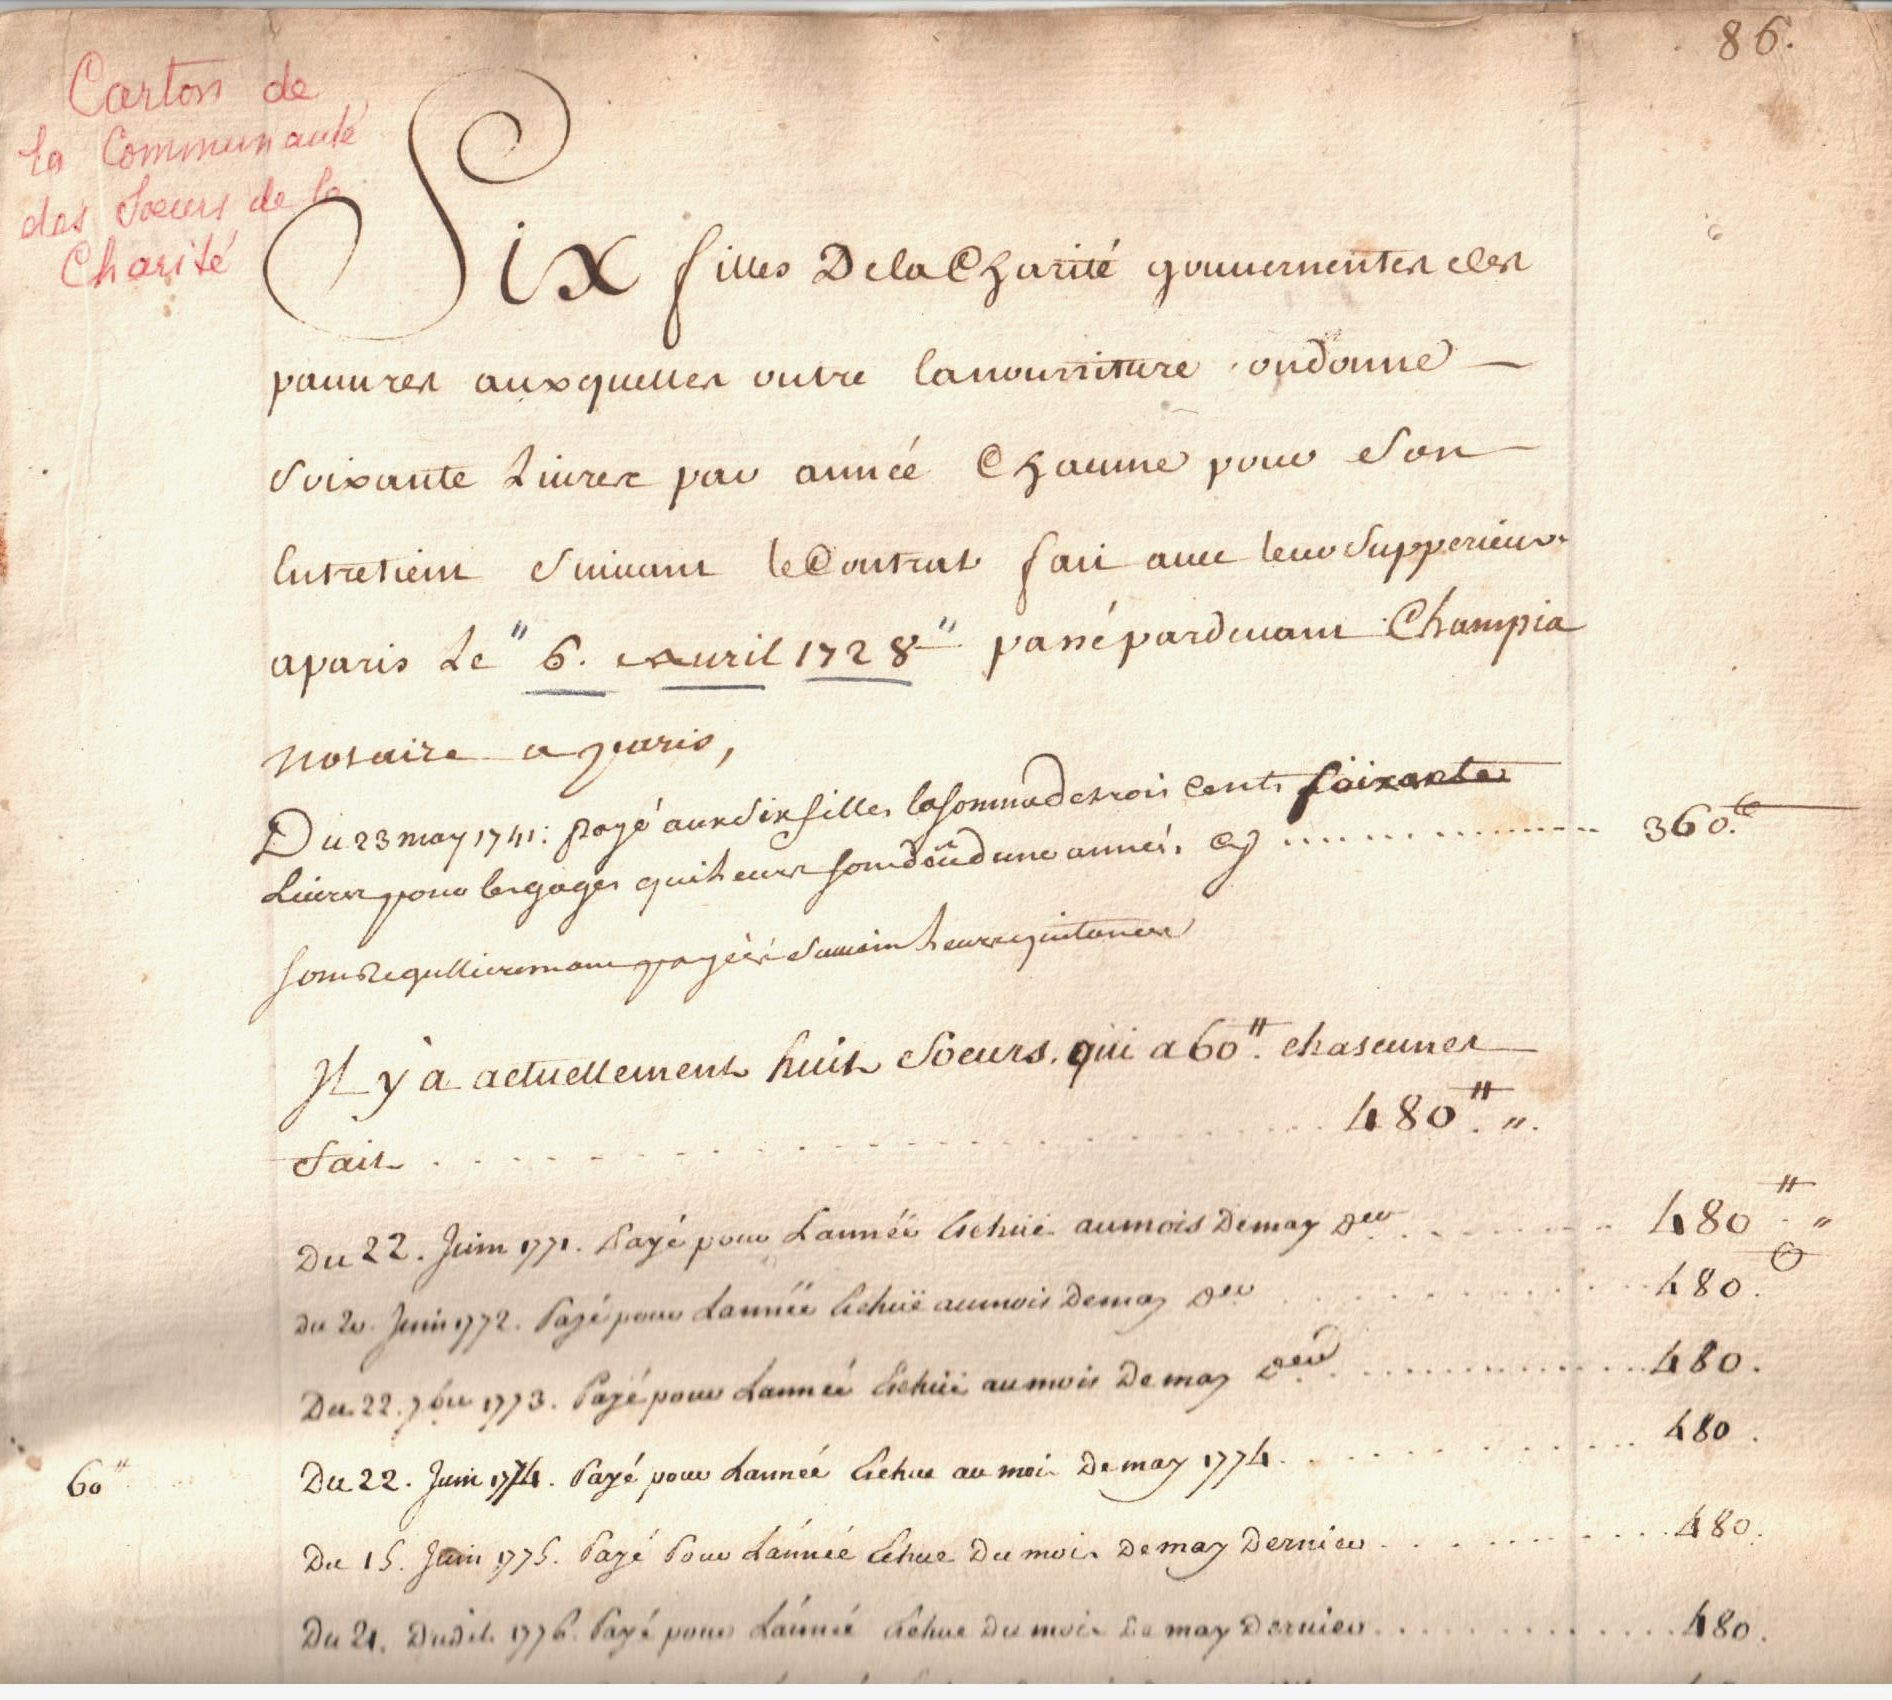 86.
Carton de
la Communauté
des Soeurs de la
Charité
Six filles De la Charité gouvernentes des
pauures auxquelles outre la nourriture on donne
Soixante Liures par année Chacune pour Son
Entretient Suiuant le Contrat fait auec leur Supperieur
a paris Le "6. Auril 1728" passé pardeuant Champia
notaire a paris,
Du 23 may 1741: payé aux Six filles la somme de trois Cents Soixante
Liures pour les gages qui leurs son deüe d'une année. Cy 360.lt
son Regullieremant payées Suiuant leurs quitances
Il y a actuellement huit Soeurs. qui a 60 ₶. chascunes
fait 480 ₶. ".
Du 22. Juin 1771. Payé pour L'année Echüe au mois De may Der 480 ₶ "
Du 20. Juin 1772. Payé pour L'année Echüe au mois De may Der 480.
Du 22. 7bre 1773. Payé pour L'année Echüe au mois De may Der 480.
60 ₶ Du 22. Juin 1774. Payé pour L'année Echue au mois De may 1774. 480.
Du 15. Juin 1775. Payé Pour L'année Echue Du mois De may Dernier 480.
Du 21. Dudit 1776. Payé pour L'année Echue Du mois De may Dernier 480.